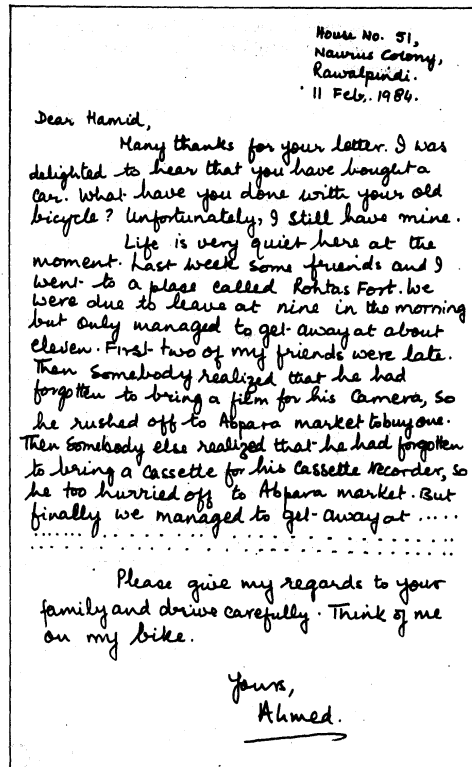 House No. 51,
Naurus Colony,
Rawalpindi.
11 Feb. 1984.
Dear Hamid,
Many thanks for your letter. I was
delighted to hear that you have bought a
car. What have you done with your old
bicycle? Unfortunately, I still have mine.
Life is very quiet here at the
moment. Last week some friends and I
went to a place called Rohtas Fort. We
were due to leave at nine in the morning
but only managed to get away at about
eleven. First two of my friends were late.
Then somebody realized that he had
forgotten to bring a film for his camera, so
he rushed off to Abpara market to buy one.
Then somebody else realized that he had forgotten
to bring a cassette for his cassette recorder, so
he too hurried off to Abpara market. But
finally we managed to get away at .....
.......................................
.......................................
Please give my regards to your
family and drive carefully. Think of me
on my bike.
Yours,
Ahmed.